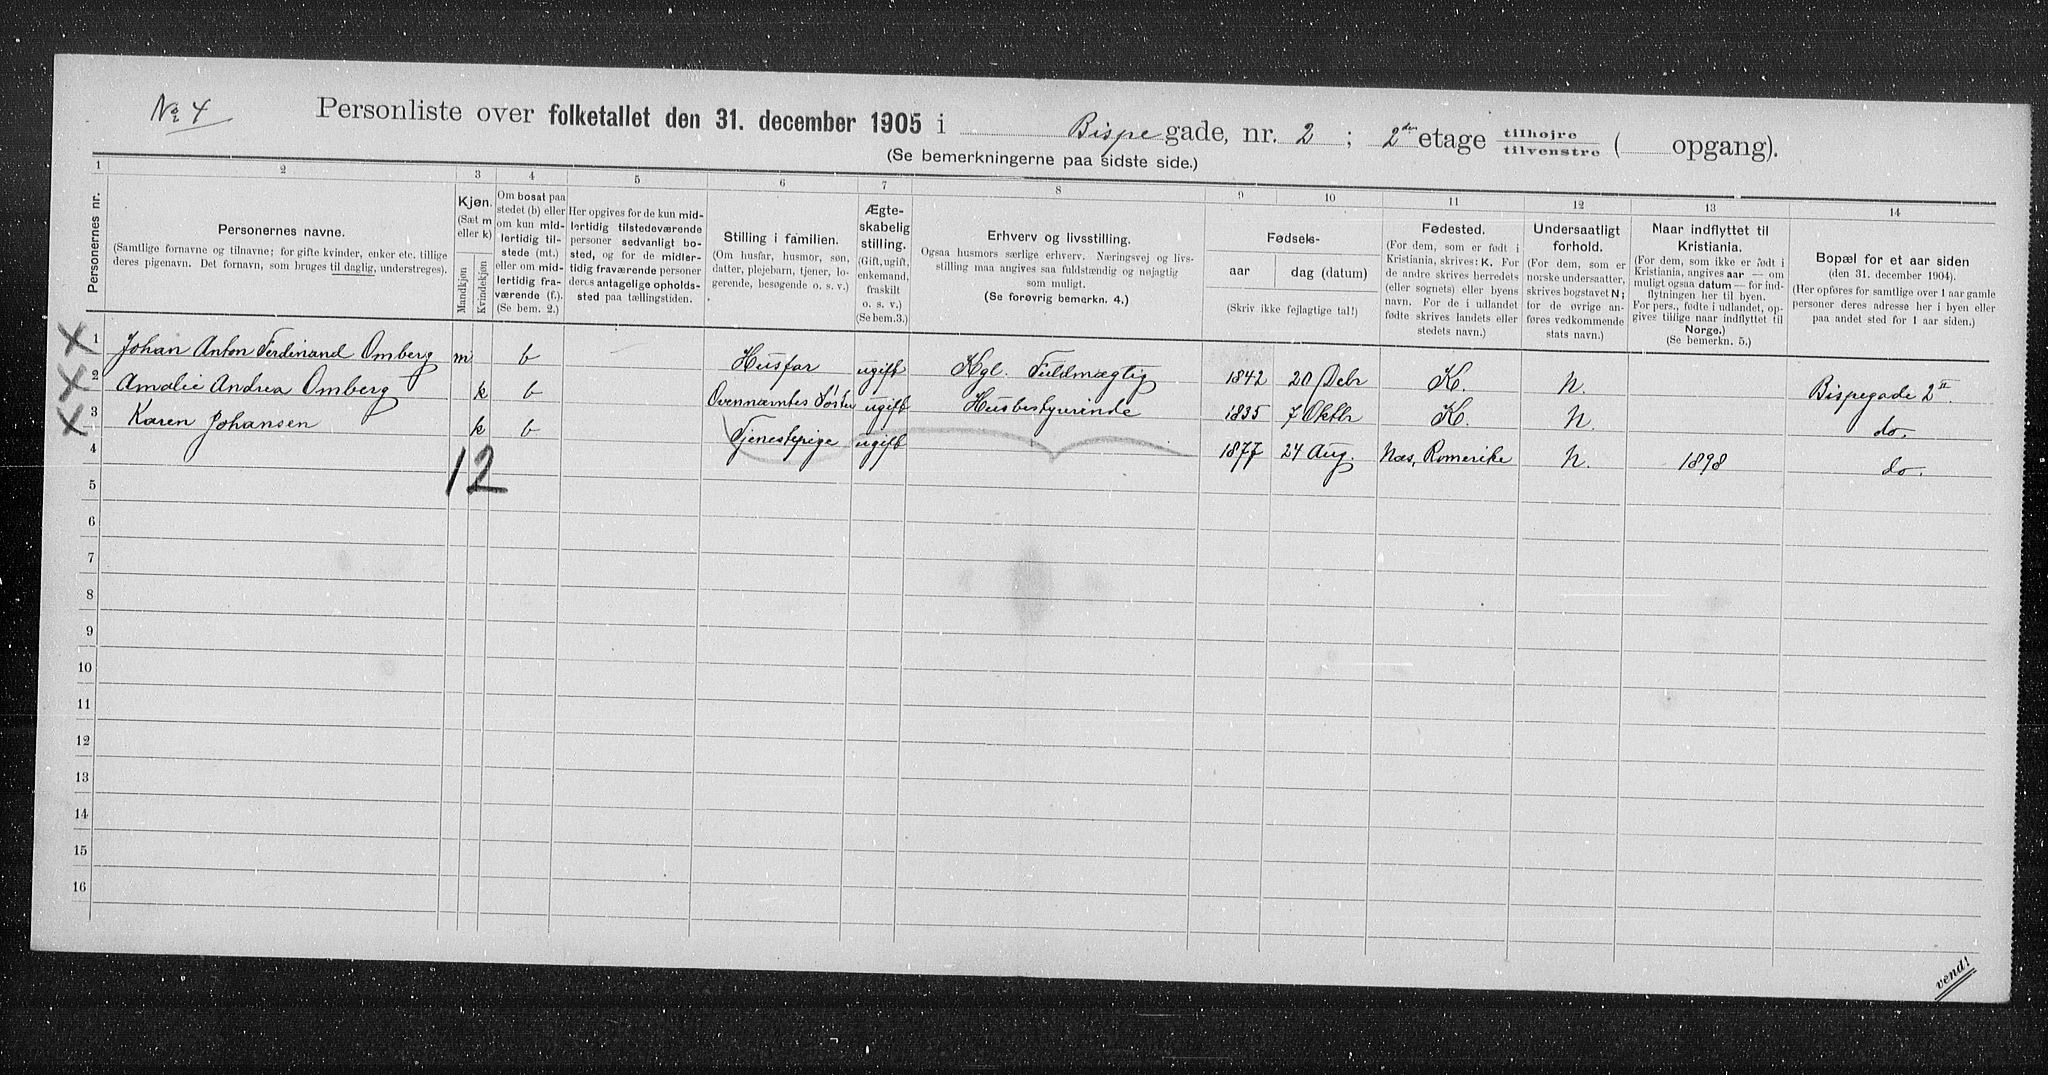 No 4
Personliste over folketallet den 31. december 1905 i Bispe gade, nr. 2 ; 2den etage tilhøjre / tilvenstre ( opgang).
(Se bemerkningerne paa sidste side.)
1 2 3 4 5 6 7 8 9 10 11 12 13 14
Personernes nr.
Personernes navne.
(Samtlige fornavne og tilnavne; for gifte kvinder, enker etc. tillige
deres pigenavn. Det fornavn, som bruges til daglig, understreges).
Kjøn.
(Sæt m
eller k)
Mandkjøn
Kvindekjøn
Om bosat paa
stedet (b) eller
om kun mid-
lertidig til-
stede (mt.)
eller om mid-
lertidig fra-
værende (f.).
(Se bem. 2.)
Her opgives for de kun mid-
lertidig tilstedeværende
personer sedvanligt bo-
sted, og for de midler-
tidig fraværende personer
deres antagelige opholds-
sted paa tællingstiden.
Stilling i familien.
(Om husfar, husmor, søn,
datter, plejebarn, tjener, lo-
gerende, besøgende o. s. v.)
Ægte-
skabelig
stilling.
(Gift, ugift,
enkemand,
fraskilt
o. s. v.)
(Se bem. 3.)
Erhverv og livsstilling.
Ogsaa husmors særlige erhverv. Næringsvej og livs-
stilling maa angives saa fuldstændig og nøjagtig
som muligt.
(Se forøvrig bemerkn. 4.)
Fødsels-
aar dag (datum)
(Skriv ikke fejlagtige tal!)
Fødested.
(For dem, som er født i
Kristiania, skrives: K. For
de andre skrives herredets
(eller sognets) eller byens
navn. For de i udlandet
fødte skrives landets eller
stedets navn.)
Undersaatligt
forhold.
(For dem, som er
norske undersaatter,
skrives bogstavet N;
for de øvrige an-
føres vedkommende
stats navn.)
Naar indflyttet til
Kristiania.
(For dem, som ikke er født i
Kristiania, angives aar — om
muligt ogsaa datum — for ind-
flytningen her til byen.
For pers., fødte i udlandet, op-
gives tillige naar indflyttet til
Norge.)
(Se bemerkn. 5.)
Bopæl for et aar siden
(den 31. december 1904).
(Her opføres for samtlige over 1 aar gamle
personer deres adresse her i byen eller
paa andet sted for 1 aar siden.)
X 1 Johan Anton Ferdinand Omberg m b Husfar ugift Kgl. Fuldmægtig 1842 20 Debr K. N. Bispegade 2 II
X 2 Amalie Andrea Omberg k b Ovennævntes Søster ugift Husbestyrerinde 1835 7 Oktbr K. N. do.
X 3 Karen Johansen k b Tjenestepige ugift 1877 24 Aug. Næs, Romerike N. 1898 do.
4
12
5
6
7
8
9
10
11
12
13
14
15
16
vend!